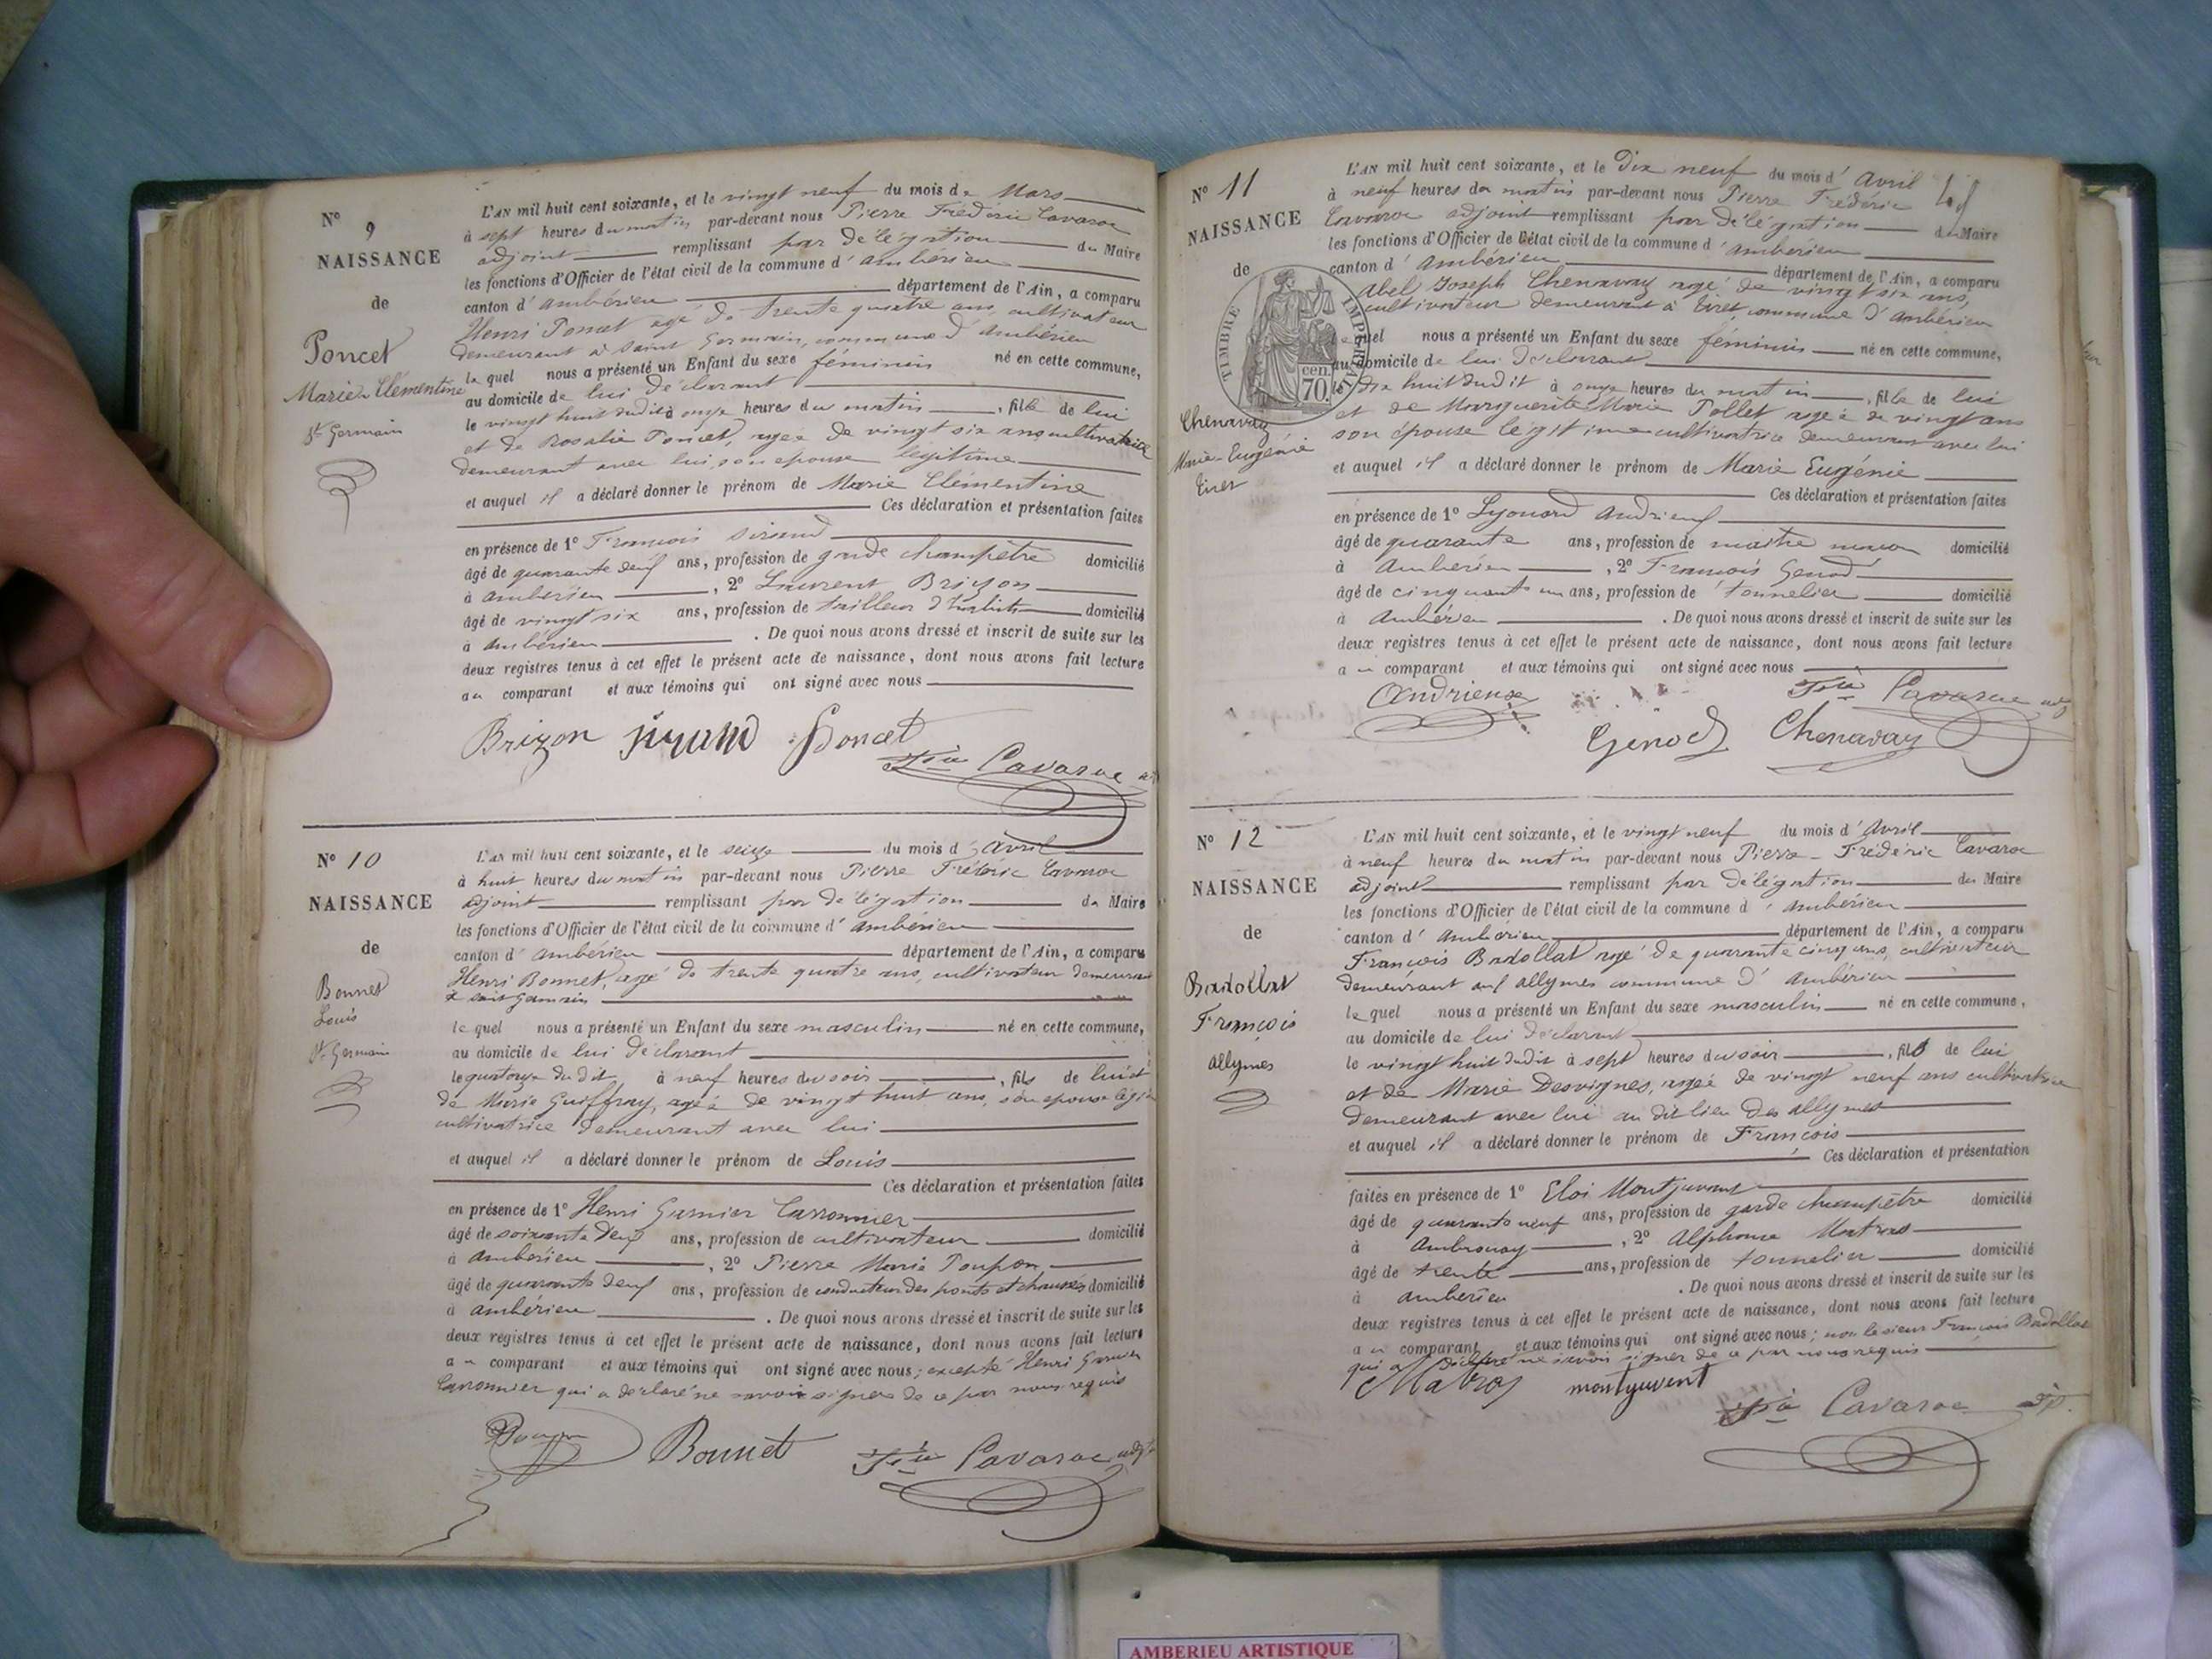 N° 9
NAISSANCE
de
Poncet
Marie Clémentine
St Germain
L'AN mil huit cent soixante, et le vingt neuf du mois de Mars
à sept heures du matin par-devant nous Pierre Frédéric Cavaroc
adjoint remplissant par délégation du Maire
les fonctions d'Officier de l'état civil de la commune d'ambérieu
canton d'ambérieu département de l'Ain, a comparu
Henri Poncet agé de trente quatre ans, cultivateur
demeurant à Saint Germain, commune d'ambérieu
le quel nous a présenté un Enfant du sexe féminin né en cette commune,
au domicile de lui déclarant
le vingt huit dudit à onze heures du matin, fille de lui
et de Rosalie Poncet, agée de vingt six ans cultivatrice
demeurant avec lui, son épouse légitime
et auquel il a déclaré donner le prénom de Marie Clémentine
Ces déclaration et présentation faites
en présence de 1° François Siraud
âgé de quarante deux ans, profession de garde champêtre domicilié
à ambérieu, 2° Laurent Brizon
âgé de vingt six ans, profession de tailleur d'habits domicilié
à ambérieu. De quoi nous avons dressé et inscrit de suite sur les
deux registres tenus à cet effet le présent acte de naissance, dont nous avons fait lecture
au comparant et aux témoins qui ont signé avec nous
Brizon Siraud Poncet
Fric Cavaroc
N° 10
NAISSANCE
de
Bonnet
Louis
St Germain
L'AN mil huit cent soixante, et le seize du mois d'Avril
à huit heures du matin par-devant nous Pierre Fréderic Cavaroc
adjoint remplissant par délégation du Maire
les fonctions d'Officier de l'état civil de la commune d'ambérieu
canton d'ambérieu département de l'Ain, a comparu
Henri Bonnet, agé de trente quatre ans, cultivateur demeurant
à saint Germain
le quel nous a présenté un Enfant du sexe masculin né en cette commune,
au domicile de lui déclarant
le quatorze dudit à neuf heures du soir, fils de lui et
de Marie Guiffray, agée de vingt huit ans, son epouse légi
cultivatrice demeurant avec lui
et auquel il a déclaré donner le prénom de Louis
Ces déclaration et présentation faites
en présence de 1° Henri Garnier Carronnier
âgé de soixante deux ans, profession de cultivateur domicilié
à ambérieu, 2° Pierre Marie Poupon
âgé de quarante deux ans, profession de conducteur des ponts et chaussés domicilié
à ambérieu. De quoi nous avons dressé et inscrit de suite sur les
deux registres tenus à cet effet le présent acte de naissance, dont nous avons fait lecture
au comparant et aux témoins qui ont signé avec nous; excepté Henri Garnier
Carronnier qui a déclaré ne savoir signer de ce par nous requis
Bonnet Fric Cavaroc adjt
N° 11
NAISSANCE
de
TIMBRE IMPERIAL
70 cen.
Chenavay
Marie-Eugénie
Tiret
L'AN mil huit cent soixante, et le Dix neuf du mois d'Avril
à neuf heures du matin par-devant nous Pierre Fréderic
Cavaroc adjoint remplissant par délégation du Maire
les fonctions d'Officier de l'état civil de la commune d'ambérieu
canton d'Ambérieu département de l'Ain, a comparu
Abel Joseph Chenavay agé de vingt six ans,
cultivateur demeurant à Tiret commune d'ambérieu
lequel nous a présenté un Enfant du sexe féminin né en cette commune,
au domicile de lui déclarant
le dix huit dudit à onze heures du matin, fille de lui
et de Marguerite Marie Pollet agée de vingt ans
son épouse légitime cultivatrice demeurant avec lui
et auquel il a déclaré donner le prénom de Marie Eugénie
Ces déclaration et présentation faites
en présence de 1° Lyonard Andrieux
âgé de quarante ans, profession de maitre maçon domicilié
à Ambérieu, 2° François Genod
âgé de cinquante un ans, profession de tonnelier domicilié
à Ambérieu. De quoi nous avons dressé et inscrit de suite sur les
deux registres tenus à cet effet le présent acte de naissance, dont nous avons fait lecture
au comparant et aux témoins qui ont signé avec nous
Andrieux Fric Cavaroc adj
Genod Chenavay
N° 12
NAISSANCE
de
Badollat
François
Allymes
L'AN mil huit cent soixante, et le vingt neuf du mois d'Avril
à neuf heures du matin par-devant nous Pierre-Frédéric Cavaroc
adjoint remplissant par délégation du Maire
les fonctions d'Officier de l'état civil de la commune d'ambérieu
canton d'ambérieu département de l'Ain, a comparu
François Badollat agé de quarante cinq ans, cultivateur
demeurant aux allymes commune d'ambérieu
le quel nous a présenté un Enfant du sexe masculin né en cette commune,
au domicile de lui déclarant
le vingt huit dudit à sept heures du soir, fils de lui
et de Marie Desvignes, agée de vingt neuf ans cultivatrice
demeurant avec lui au dit lieu des allymes
et auquel il a déclaré donner le prénom de François
Ces déclaration et présentation
faites en présence de 1° Eloi Montjuvent
âgé de quarante neuf ans, profession de garde champêtre domicilié
à Ambronay, 2° Alphonse Matras
âgé de trente ans, profession de tonnelier domicilié
à ambérieu. De quoi nous avons dressé et inscrit de suite sur les
deux registres tenus à cet effet le présent acte de naissance, dont nous avons fait lecture
au comparant et aux témoins qui ont signé avec nous; non le sieur François Badollat
qui a déclaré ne savoir signer de ce par nous requis
Matras montjuvent
Fric Cavaroc adjt
AMBERIEU ARTISTIQUE